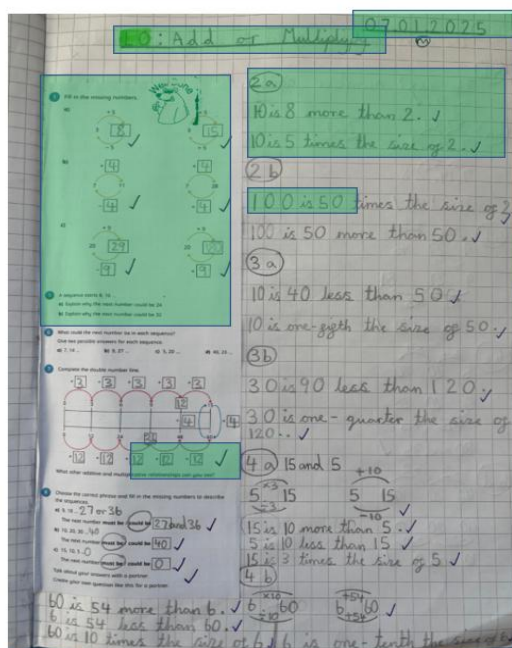 07.01.2025
LO: Add or Multiply
Well Done
Fill in the missing numbers.
a)
8
15
b)
4
4
4
4
c)
20
29
20
9
9
A sequence starts 8, 16 ...
a) Explain why the next number could be 24.
b) Explain why the next number could be 32.
What could the next number be in each sequence?
Give two possible answers for each sequence.
a) 7, 14 ...
b) 9, 27 ...
c) 5, 20 ...
Complete the double number line.
What other additive and multiplicative relationships can you see?
Choose the correct phrase and fill in the missing numbers to describe
the sequences.
a) 9, 18 ... 27 or 36
The next number must be / could be 27 and 36
b) 10, 20, 30 ... 40
The next number must be / could be 40
c) 15, 10, 5 ... 0
The next number must be / could be 0
Talk about your answers with a partner.
Create your own question like this for a partner.
2a
10 is 8 more than 2.
10 is 5 times the size of 2.
2b
100 is 50 times the size of 2
100 is 50 more than 50.
3a
10 is 40 less than 50
10 is one-fifth the size of 50.
3b
30 is 90 less than 120.
30 is one-quarter the size of
120.
4a 15 and 5
×3 +10
5 15 5 15
÷3 -10
15 is 10 more than 5.
5 is 10 less than 15
15 is 3 times the size of 5
4b
×10 +54
6 60 6 60
÷10 +54
60 is 54 more than 6.
6 is 54 less than 60.
60 is 10 times the size of 6. 6 is one-tenth the size of